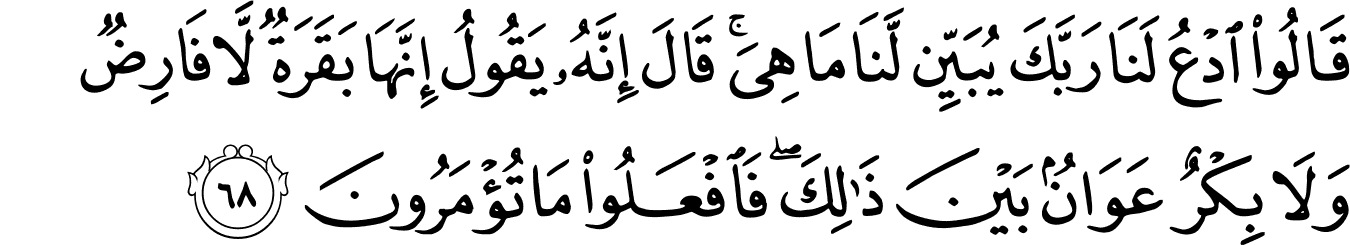 قَالُوا۟ ٱدْعُ لَنَا رَبَّكَ يُبَيِّن لَّنَا مَا هِىَ ۚ قَالَ إِنَّهُۥ يَقُولُ إِنَّهَا بَقَرَةٌ لَّا فَارِضٌ
وَلَا بِكْرٌ عَوَانٌۢ بَيْنَ ذَٰلِكَ ۖ فَٱفْعَلُوا۟ مَا تُؤْمَرُونَ ٦٨